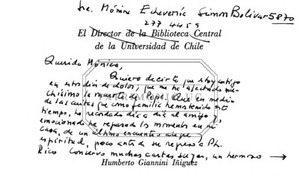 Sra. Mónica Echeverría Simón Bolívar 5870
277 4459
El Director de la Biblioteca Central
de la Universidad de Chile
Querida Mónica,
Quiero decirte que estoy contigo
en este día de dolor; que me ha afectado mu-
chísimo la muerte de Pepe. Que en medio
de las cuitas que como familia hemos tenido este
tiempo, he recordado día a día al amigo
emocionado he repasado los momentos en mi
casa, de un último encuentro
espiritual, poco antes de su regreso a Ph.
Rico Conservo muchas cartas suyas, un hermoso →
Humberto Giannini Iñiguez